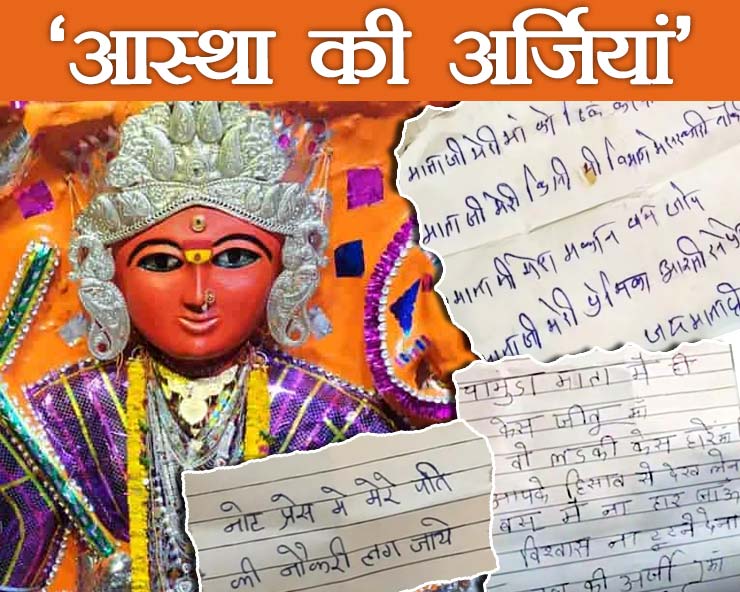 ‘आस्था की अर्जियां’
माताजी मेरी माँ को ठीक
माताजी मेरी किसी भी
माताजी मेरा मकान बन जाये
माताजी मेरी
जय माताजी
चामुंडा माता मे ही
केस जीतू माँ
वो लडकी केस हारे माँ
आपके हिसाब से देख लेना
बस में ना हार जाऊँ
विश्वास ना टूटने देना
की अर्जी माँ
नोट प्रेस मे मेरे पति
की नौकरी लग जाये